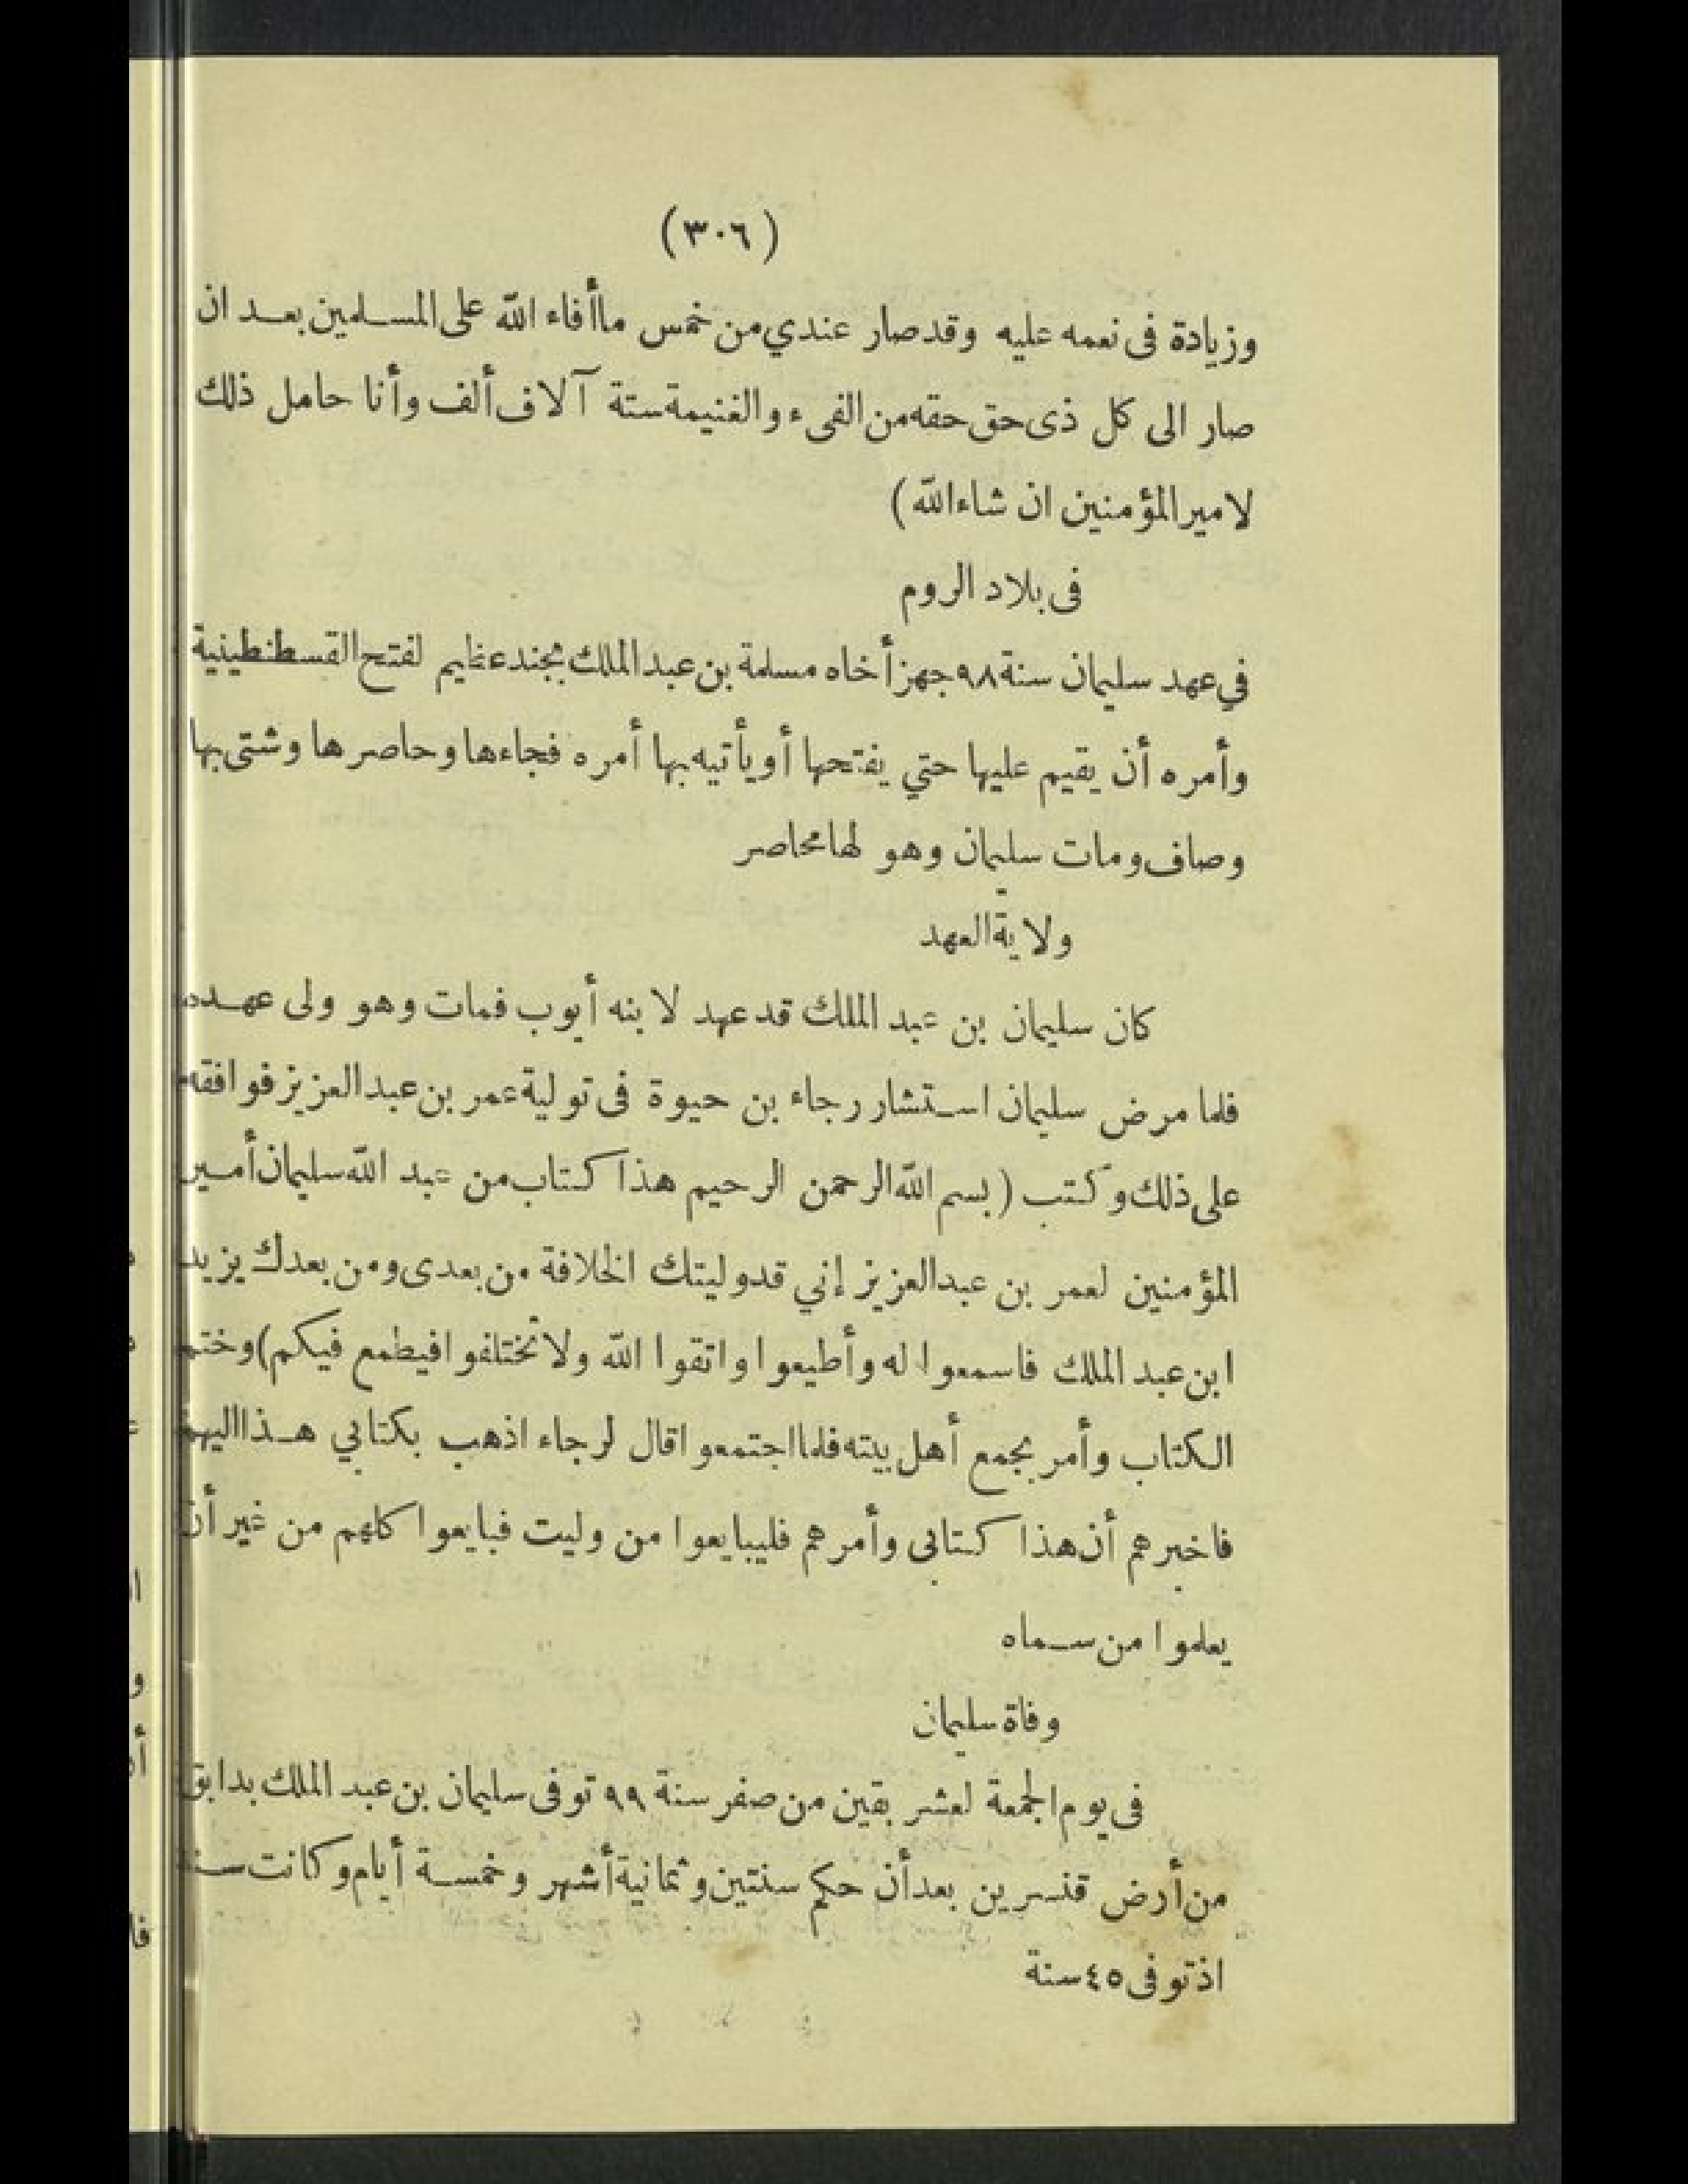 (٣٠٦)
وزيادة فى نعمه عليه وقد صار عندي من خمس ما أفاء الله على المسلمين بعد ان
صار الى كل ذى حق حقه من الفىء والغنيمة ستة آلاف ألف وأنا حامل ذلك
لامير المؤمنين ان شاء الله)
فى بلاد الروم
في عهد سليمان سنة ٩٨ جهز أخاه مسلمة بن عبد الملك بجند عظيم لفتح القسطنطينية
وأمره أن يقيم عليها حتي يفتحها أو يأتيه بها أمره فجاءها وحاصرها وشتى بها
وصاف ومات سليمان وهو لها محاصر
ولاية العهد
كان سليمان بن عبد الملك قد عهد لابنه أيوب فمات وهو ولى عهده
فلما مرض سليمان استشار رجاء بن حيوة فى تولية عمر بن عبد العزيز فوافقه
على ذلك وكتب (بسم الله الرحمن الرحيم هذا كتاب من عبد الله سليمان أمير
المؤمنين لعمر بن عبد العزيز إني قد وليتك الخلافة من بعدى ومن بعدك يزيد
ابن عبد الملك فاسمعوا له وأطيعوا واتقوا الله ولا تختلفوا فيطمع فيكم) وختم
الكتاب وأمر بجمع أهل بيته فلما اجتمعوا قال لرجاء اذهب بكتابي هذا اليهم
فاخبرهم أن هذا كتابى وأمرهم فليبايعوا من وليت فبايعوا كلهم من غير أن
يعلموا من سماه
وفاة سليمان
فى يوم الجمعة لعشر بقين من صفر سنة ٩٩ توفى سليمان بن عبد الملك بدابق
من أرض قنسرين بعد أن حكم سنتين وثمانية أشهر وخمسة أيام وكانت سنه
اذ توفى ٤٥ سنة